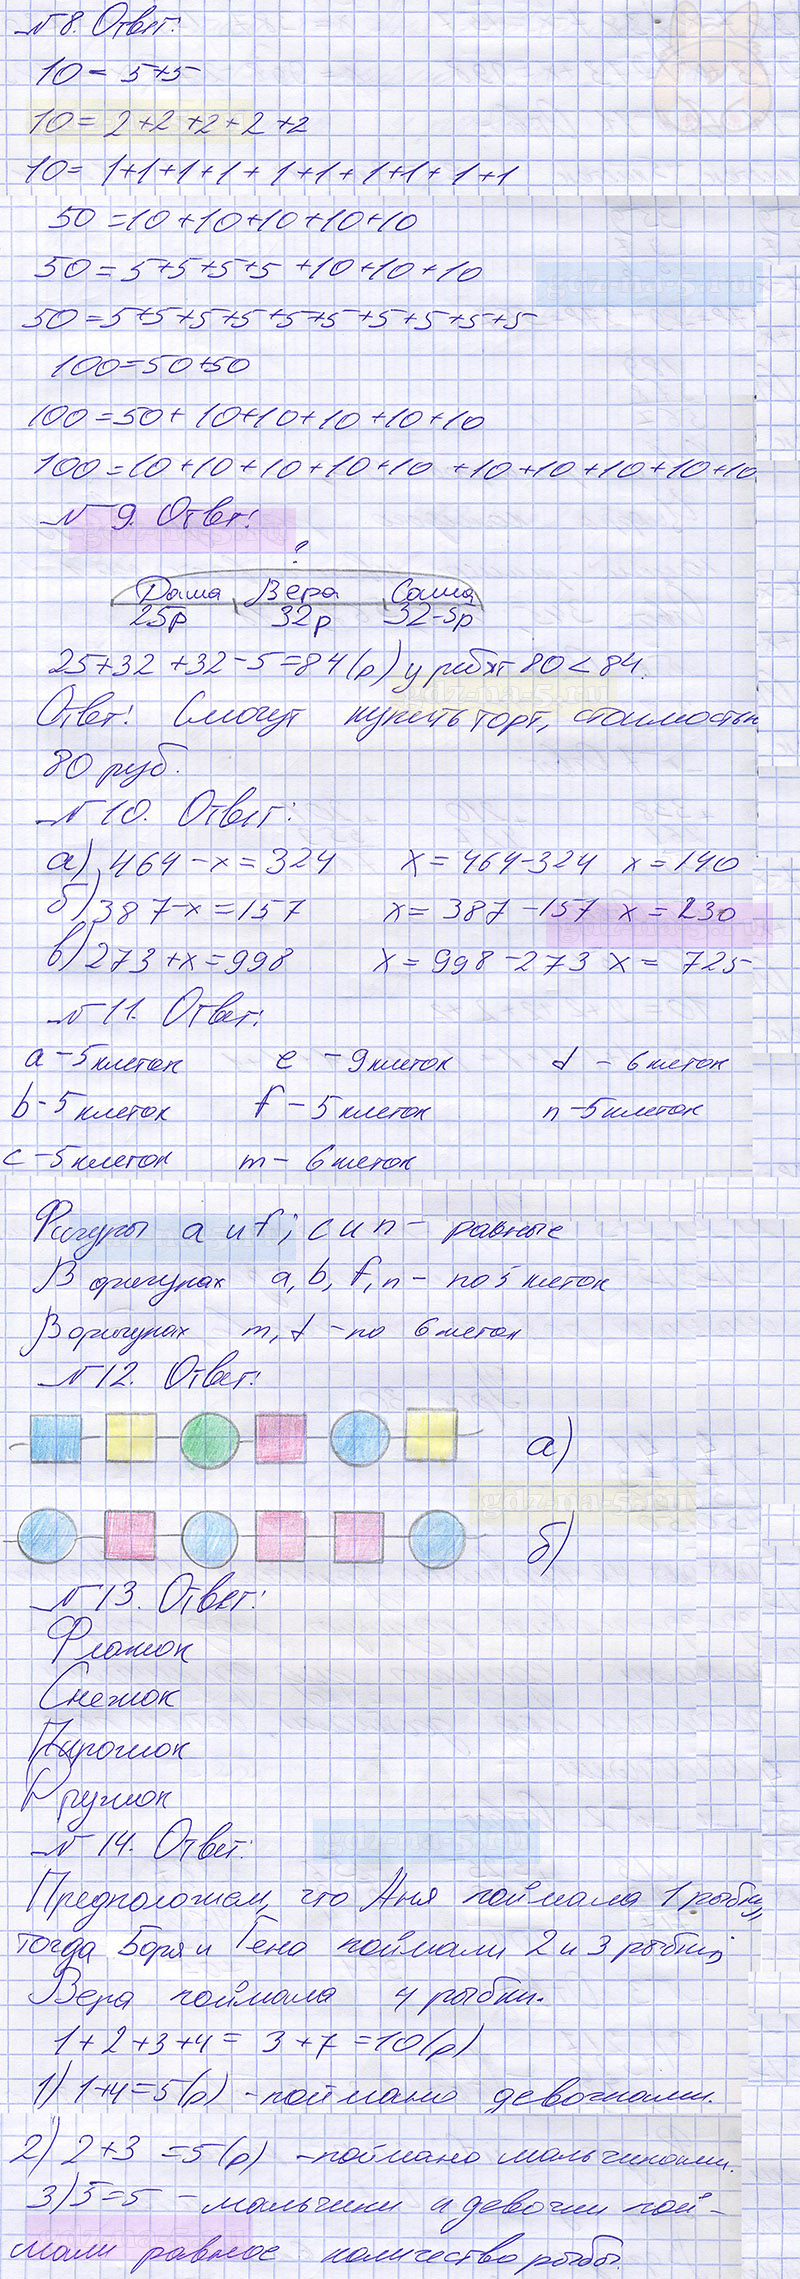 № 8. Ответ:
10 = 5+5
10 = 2+2+2+2+2
10 = 1+1+1+1+1+1+1+1+1+1
50 = 10+10+10+10+10
50 = 5+5+5+5+10+10+10
50 = 5+5+5+5+5+5+5+5+5+5
100 = 50+50
100 = 50+10+10+10+10+10
100 = 10+10+10+10+10+10+10+10+10+10
№ 9. Ответ:
?
Даша Вера Саша
25р 32р 32-5р
25+32+32-5=84(р) у ребят 80<84.
Ответ: Смогут купить торт, стоимостью
80 руб.
№ 10. Ответ:
а) 464-х=324 х=464-324 х=140
б) 387-х=157 х=387-157 х=230
в) 273+х=998 х=998-273 х=725
№ 11. Ответ:
a - 5 клеток e - 9 клеток d - 6 клеток
b - 5 клеток f - 5 клеток n - 5 клеток
c - 5 клеток m - 6 клеток
Фигуры a и f; c и n - равные
В фигурах a, b, f, n - по 5 клеток
В фигурах m, d - по 6 клеток
№ 12. Ответ:
а)
gdz-na-5.ru
б)
№ 13. Ответ:
Флажок
Снежок
Пирожок
Кружок
№ 14. Ответ:
Предположем, что Аня поймала 1 рыбку,
тогда Боря и Гена поймали 2 и 3 рыбки,
Вера поймала 4 рыбки.
1+2+3+4 = 3+7 = 10(р)
1) 1+4=5(р) - поймано девочками.
2) 2+3 = 5(р) - поймано мальчиками.
3) 5=5 - мальчики и девочки пой-
мали равное количество рыбы.